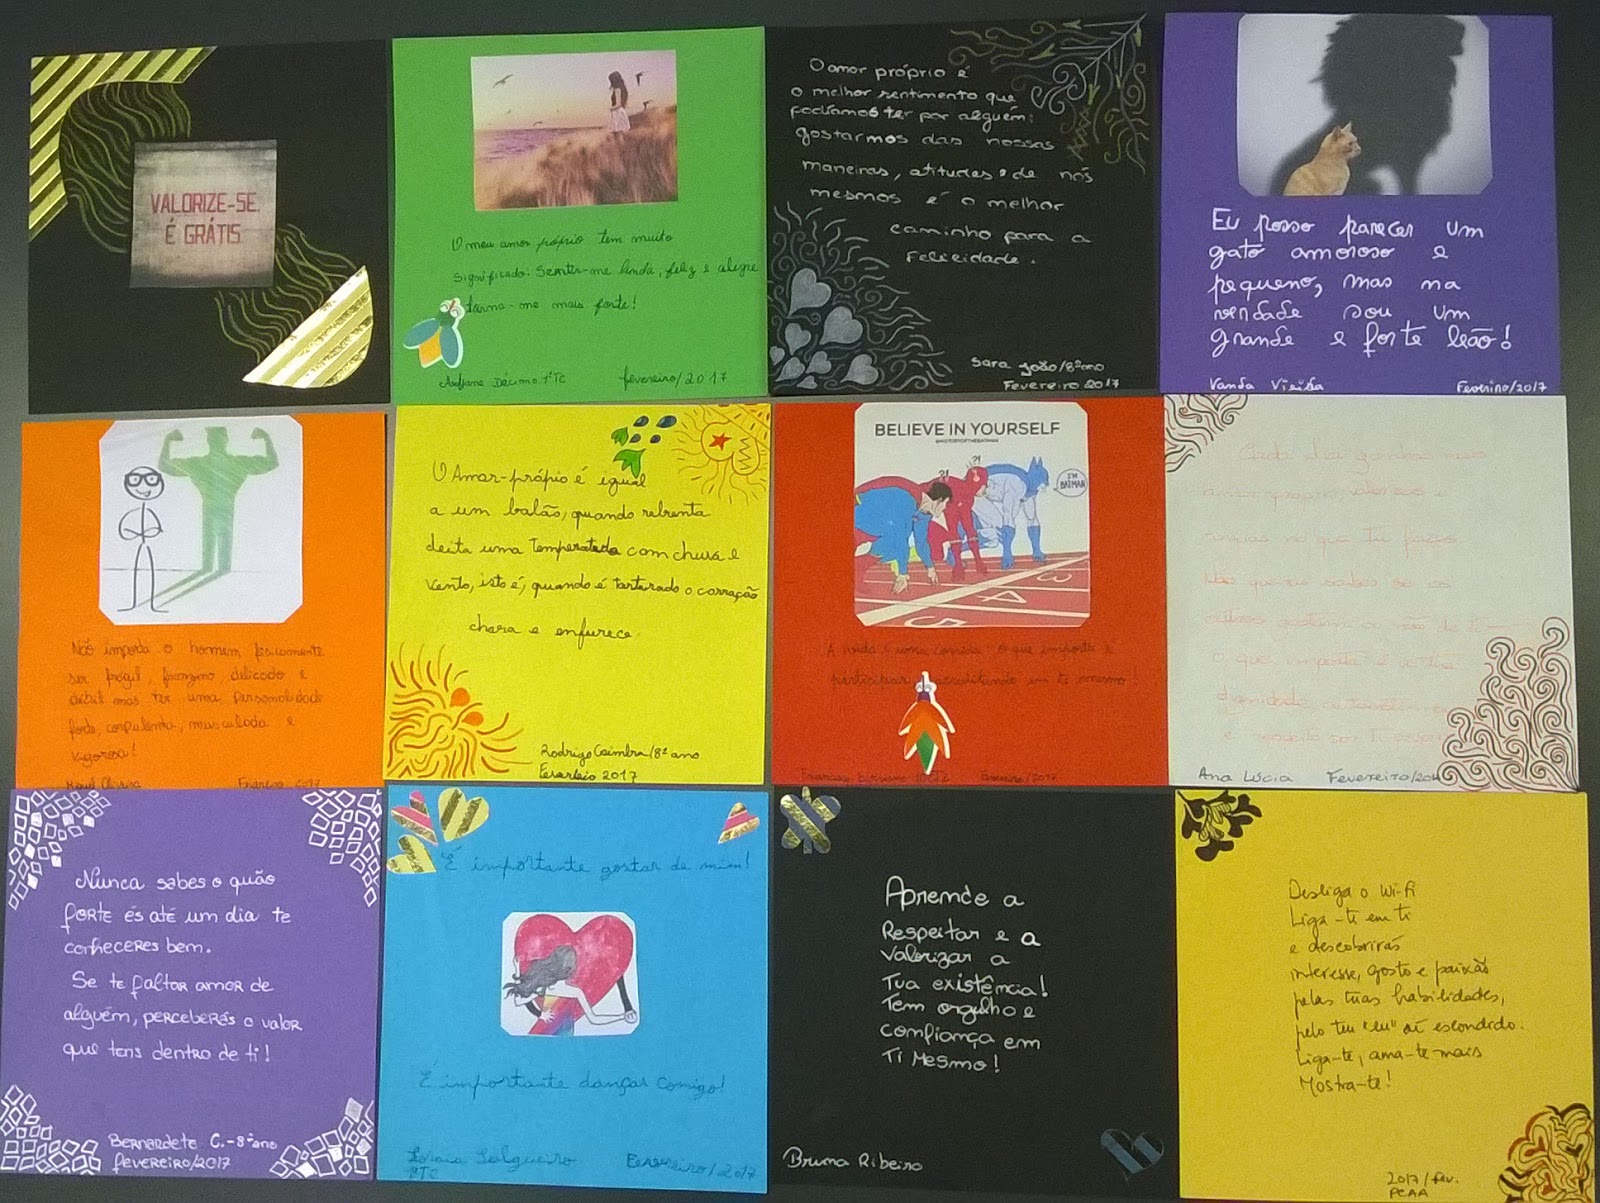 VALORIZE-SE.
É GRÁTIS.
O meu amor próprio tem muito
significado: Sentir-me linda, feliz e alegre
torna-me mais forte!
Décimo 1ºTC fevereiro/2017
O amor próprio é
o melhor sentimento que
podíamos ter por alguém:
gostarmos das nossas
maneiras, atitudes e de nós
mesmos é o melhor
caminho para a
felicidade.
Sara João/8ºano
Fevereiro 2017
Eu posso parecer um
gato amoroso e
pequeno, mas na
verdade sou um
grande e forte leão!
Vanda Vieira Fevereiro/2017
Não importa o homem fisicamente
ser frágil, franzino, delicado e
débil mas ter uma personalidade
forte, corpulenta, musculada e
vigorosa!
O Amor-própio é igual
a um balão, quando rebenta
deita uma Tempestade com chuva e
vento, isto é, quando é torturado o corração
chora e enfurece.
Rodrigo Coimbra/8º ano
Feverleio 2017
BELIEVE IN YOURSELF
?! ?!
I'M
BATMAN
3
4
A vida é uma corrida: o que importa é
participar acreditando em te mesmo!
Cada dia ganhas mais
amor próprio, valorizas
no que Tu fazes.
Não queiras saber se os
outros gostam ou não de Ti
O que importa é a tua
dignidade,
e respeito por Ti
Ana Lúcia Fevereiro/201
Nunca sabes o quão
forte és até um dia te
conheceres bem.
Se te faltar amor de
alguém, perceberás o valor
que tens dentro de ti!
Bernardete C.-8ºano
fevereiro/2017
É importante gostar de mim!
É importante dançar comigo!
Soraia Salgueiro Fevereiro/2017
1ºTC
Aprende a
Respeitar e a
Valorizar a
Tua existência!
Tem orgulho e
confiança em
Ti Mesmo!
Bruna Ribeiro
Desliga o Wi-fi
Liga-te em ti
e descobrirás
interesse, gosto e paixão
pelas tuas habilidades,
pelo teu "eu" aí escondido.
Liga-te, ama-te mais
Mostra-te!
2017/fev.
PCAA